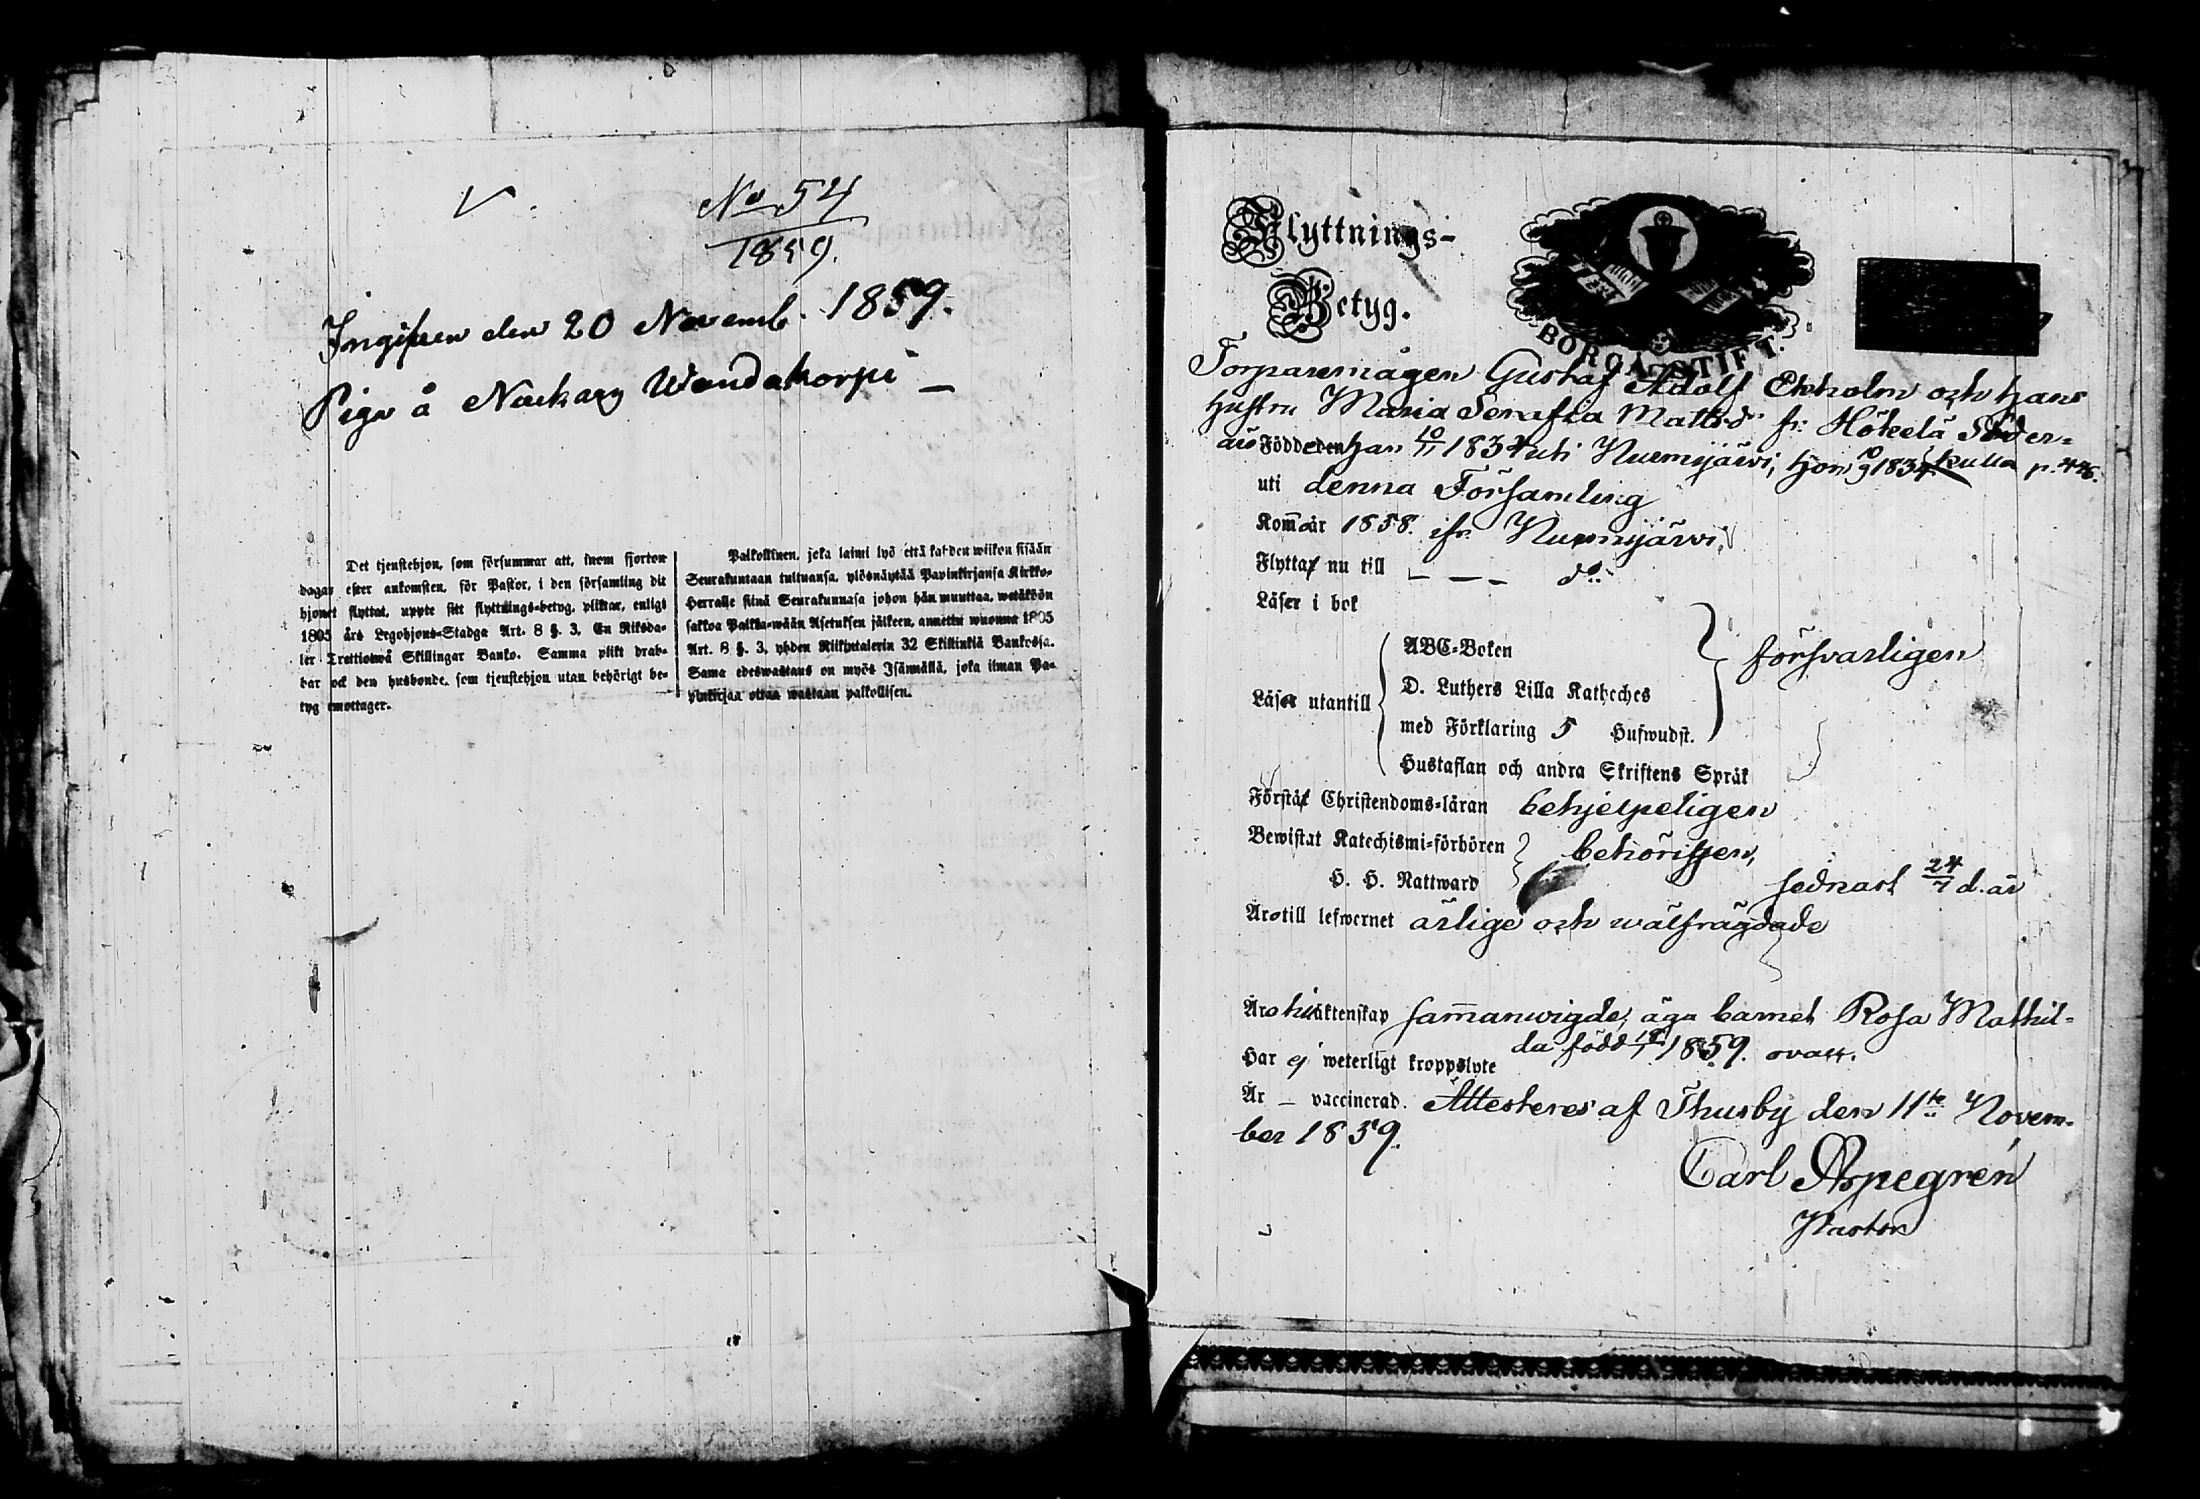 No 54
1859.
Ingifven den 20 Novemb. 1859.
Piga å Nackary Wandakorpi —
Det tjenstehjon, som försummar att, inom fjorton
dagar efter ankomsten, för Pastor, i den församling dit
hjonet flyttat, uppte sitt flyttnings-betyg, pliktar, enligt
1805 års Legohjons-Stadga Art. 8 §. 3. En Riksda-
ler Trettiotwå Skillingar Banko. Samma plikt drab-
bar ock den husbonde, som tjenstehjon utan behörigt be-
tyg emottager.
Palkollinen, joka laimi lyö että kahden wiikon sisään
Seurakuntaan tultuansa, ylösnäytää Papinkirjansa Kirkko-
Herralle siinä Seurakunnasa johon hän muuttaa, wetäköön
sakkoa Palkka-wään Asetuksen jälkeen, annettu wuonna 1805
Art. 8 §. 3, yhden Riikintalerin 32 Skillinkiä Bankossa.
Sama edeswastaus on myös Isännällä, joka ilman Pa-
pinkirjaa ottaa wastaan palkollisen.
Flyttnings-
Betyg.
BORGÅ STIFT.
Torparemågen Gustaf Adolf Ekholm och hans
hustru Maria Serafia Mattsd. fr. Hökelä Söder-
Född den han 10/11 1834 uti Nurmijärvi, hon 10/9 1834 kulla p. 446.
uti denna Församling
Kom år 1858. ifr. Nurmijärvi,
Flytta nu till — — — d:o
Läser i bok
ABC-Boken
D. Luthers Lilla Katheches
Läser utantill
med Förklaring 5 Hufwudst.
försvarligen
Hustaflan och andra Skriftens Språk
Förstå Christendoms-läran behjelpeligen
Bewistat Katechismi-förhören behörigen,
H. H. Nattward sednast 24/7 d. år
Äro till lefwernet ärlige och wälfrägdade
Äro hi äktenskap sammanwigde, äga barnet Rosa Mathil-
da född 19/7 1859. ovacc.
Har ej weterligt kroppslyte
Är — vaccinerad. Attesteres af Thusby den 11te Novem-
ber 1859.
Carl Aspegrén
Pastor